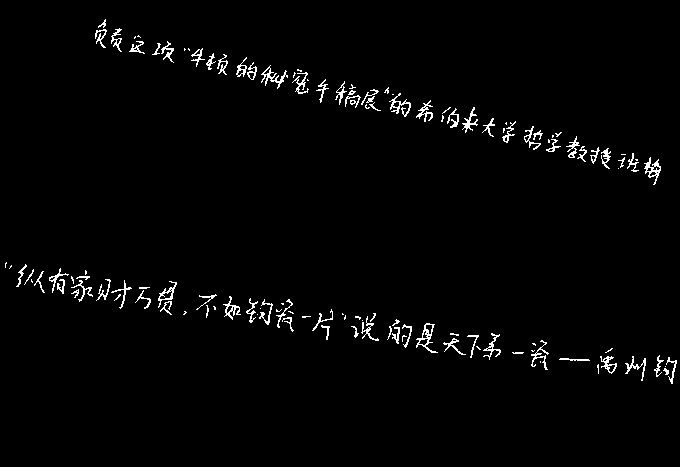 负责这项“牛顿的秘密手稿展”的希伯来大学哲学教授班梅
“纵有家财万贯,不如钧瓷一片”说的是天下第一瓷——禹州钧